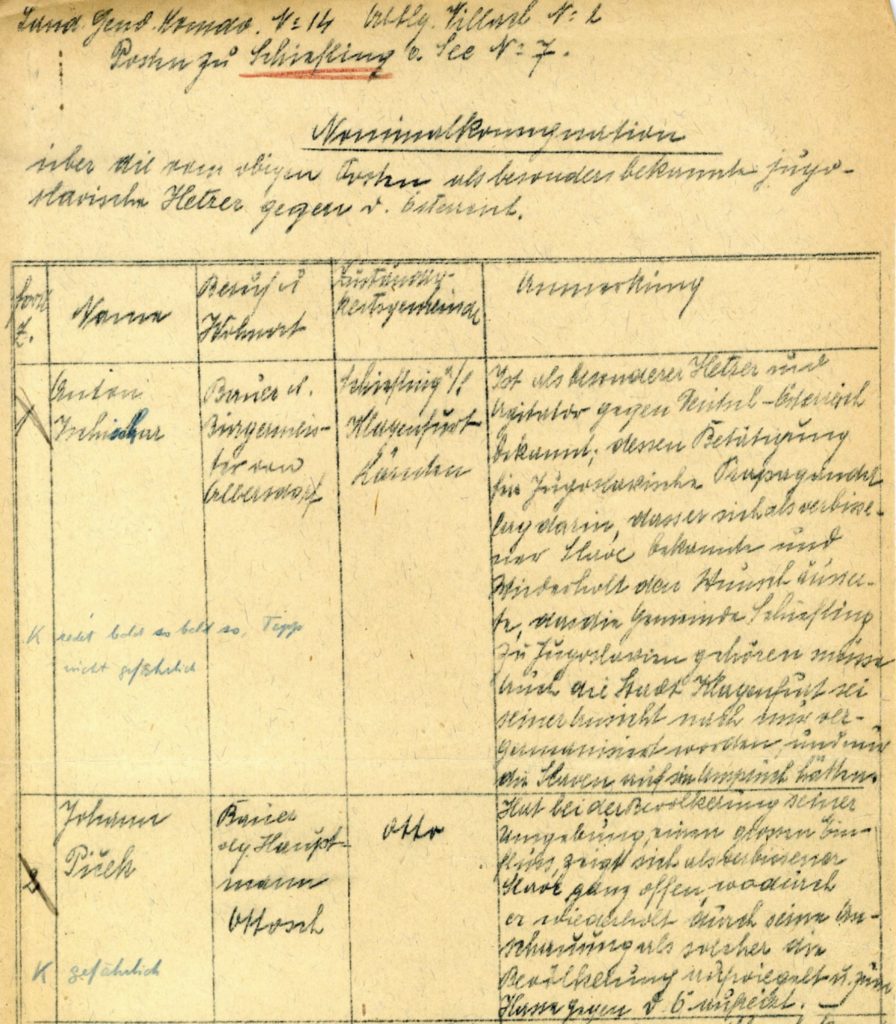 Land. Gend. Komdo. No 14 Abtlg. Villach No 2
Posten zu Schiefling a. See No 7.
Nominalkonsignation
über die vom obigen Posten als besonders bekannte jugo-
slavische Hetzer gegen D. Österreich.
Fortl
Z.
Name
Beruf u
Wohnort
Zuständig-
keitsgemeinde
Anmerkung
1
Anton
Bauer u.
Bürgermeis-
ter von
Albersdorf
Schiefling a/S
Klagenfurt
Kärnten
Ist als besonderer Hetzer und
Agitator gegen Deutsch-Österreich
bekannt; dessen Betätigung
für Jugoslavische Propaganda
lag darin, dass er sich als verbisse-
ner Slave bekannte und
Wiederholt den Wunsch äusser-
te, das die Gemeinde Schiefling
zu Jugoslavien gehören müsse
Auch die Stadt Klagenfurt sei
seiner Ansicht nach nur ver-
germanisiert worden, und nur
die Slaven auf sie Anspruch hätten.
K redet bald so bald so, Tepp
nicht gefährlich
2
Johann
Piček
Bauer
vlg. Haupt-
mann
Ottosch
otto
Hat bei der Bevölkerung seiner
Umgebung, einen grossen Ein-
fluss, zeigt sich als verbissener
Slave ganz offen, wodurch
er wiederholt durch seine An-
schauung als solcher die
Bevölkerung aufwiegelt u. zum
Hasse gegen D. Ö. aufreizt.
K gefährlich